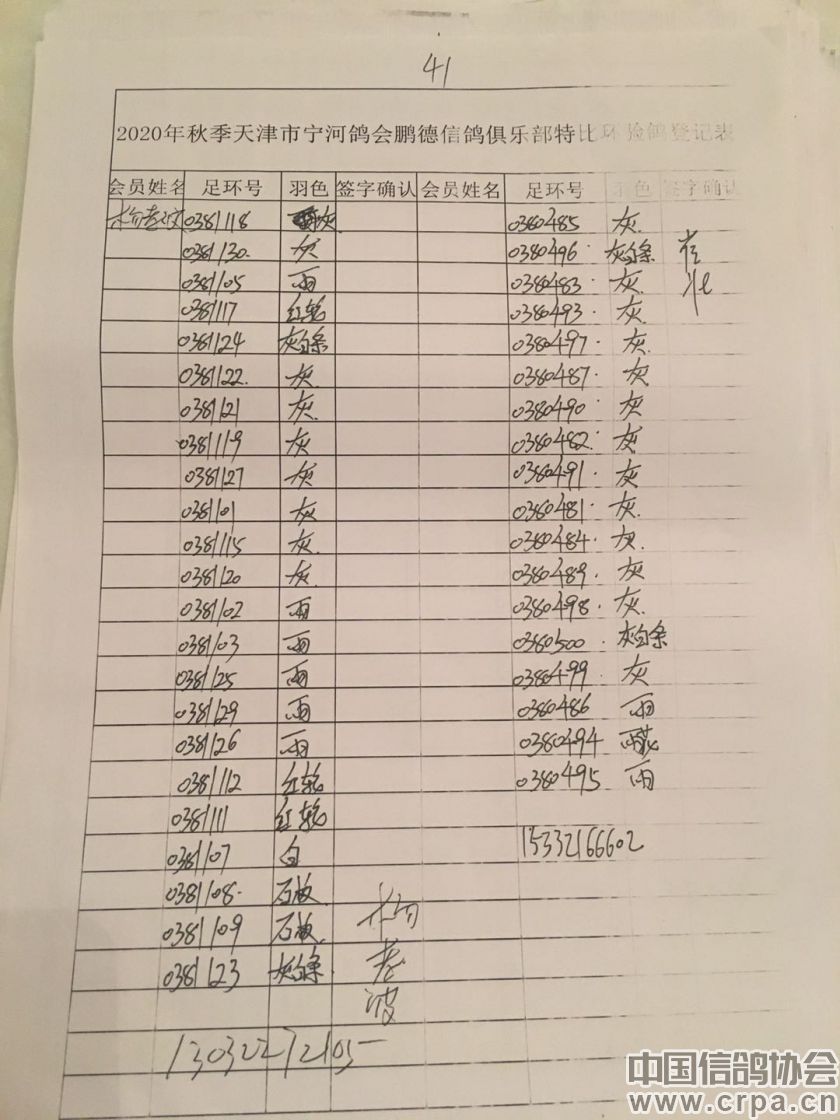 41
2020年秋季天津市宁河鸽会鹏德信鸽俱乐部特比环验鸽登记表
会员姓名 足环号 羽色 签字确认 会员姓名 足环号 羽色 签字确认
0381118 灰 0380485 灰
0381130 灰 0380496 灰白条
0381105 雨 0380483 灰
0381117 红轮 0380493 灰
0381124 灰白条 0380497 灰
0381122 灰 0380487 灰
0381121 灰 0380490 灰
0381119 灰 0380482 灰
0381127 灰 0380491 灰
0381101 灰 0380481 灰
0381115 灰 0380484 灰
0381120 灰 0380489 灰
0381102 雨 0380498 灰
0381103 雨 0380500 灰白条
0381125 雨 0380499 灰
0381129 雨 0380486 雨
0381126 雨 0380494
0381112 红轮 0380495 雨
0381111 红轮
0381107 白 15332166602
0381108 石板
0381109 石板
0381123 灰白条
13032272105
中国信鸽协会
www.crpa.cn